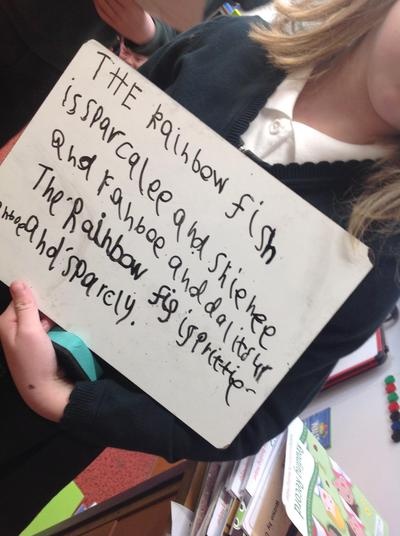 THE Rainbow fish
is sparcalee and shienee
and ranboe and dalitdur
The Rainbow fig is prittie
and sparcly.
Reading Record